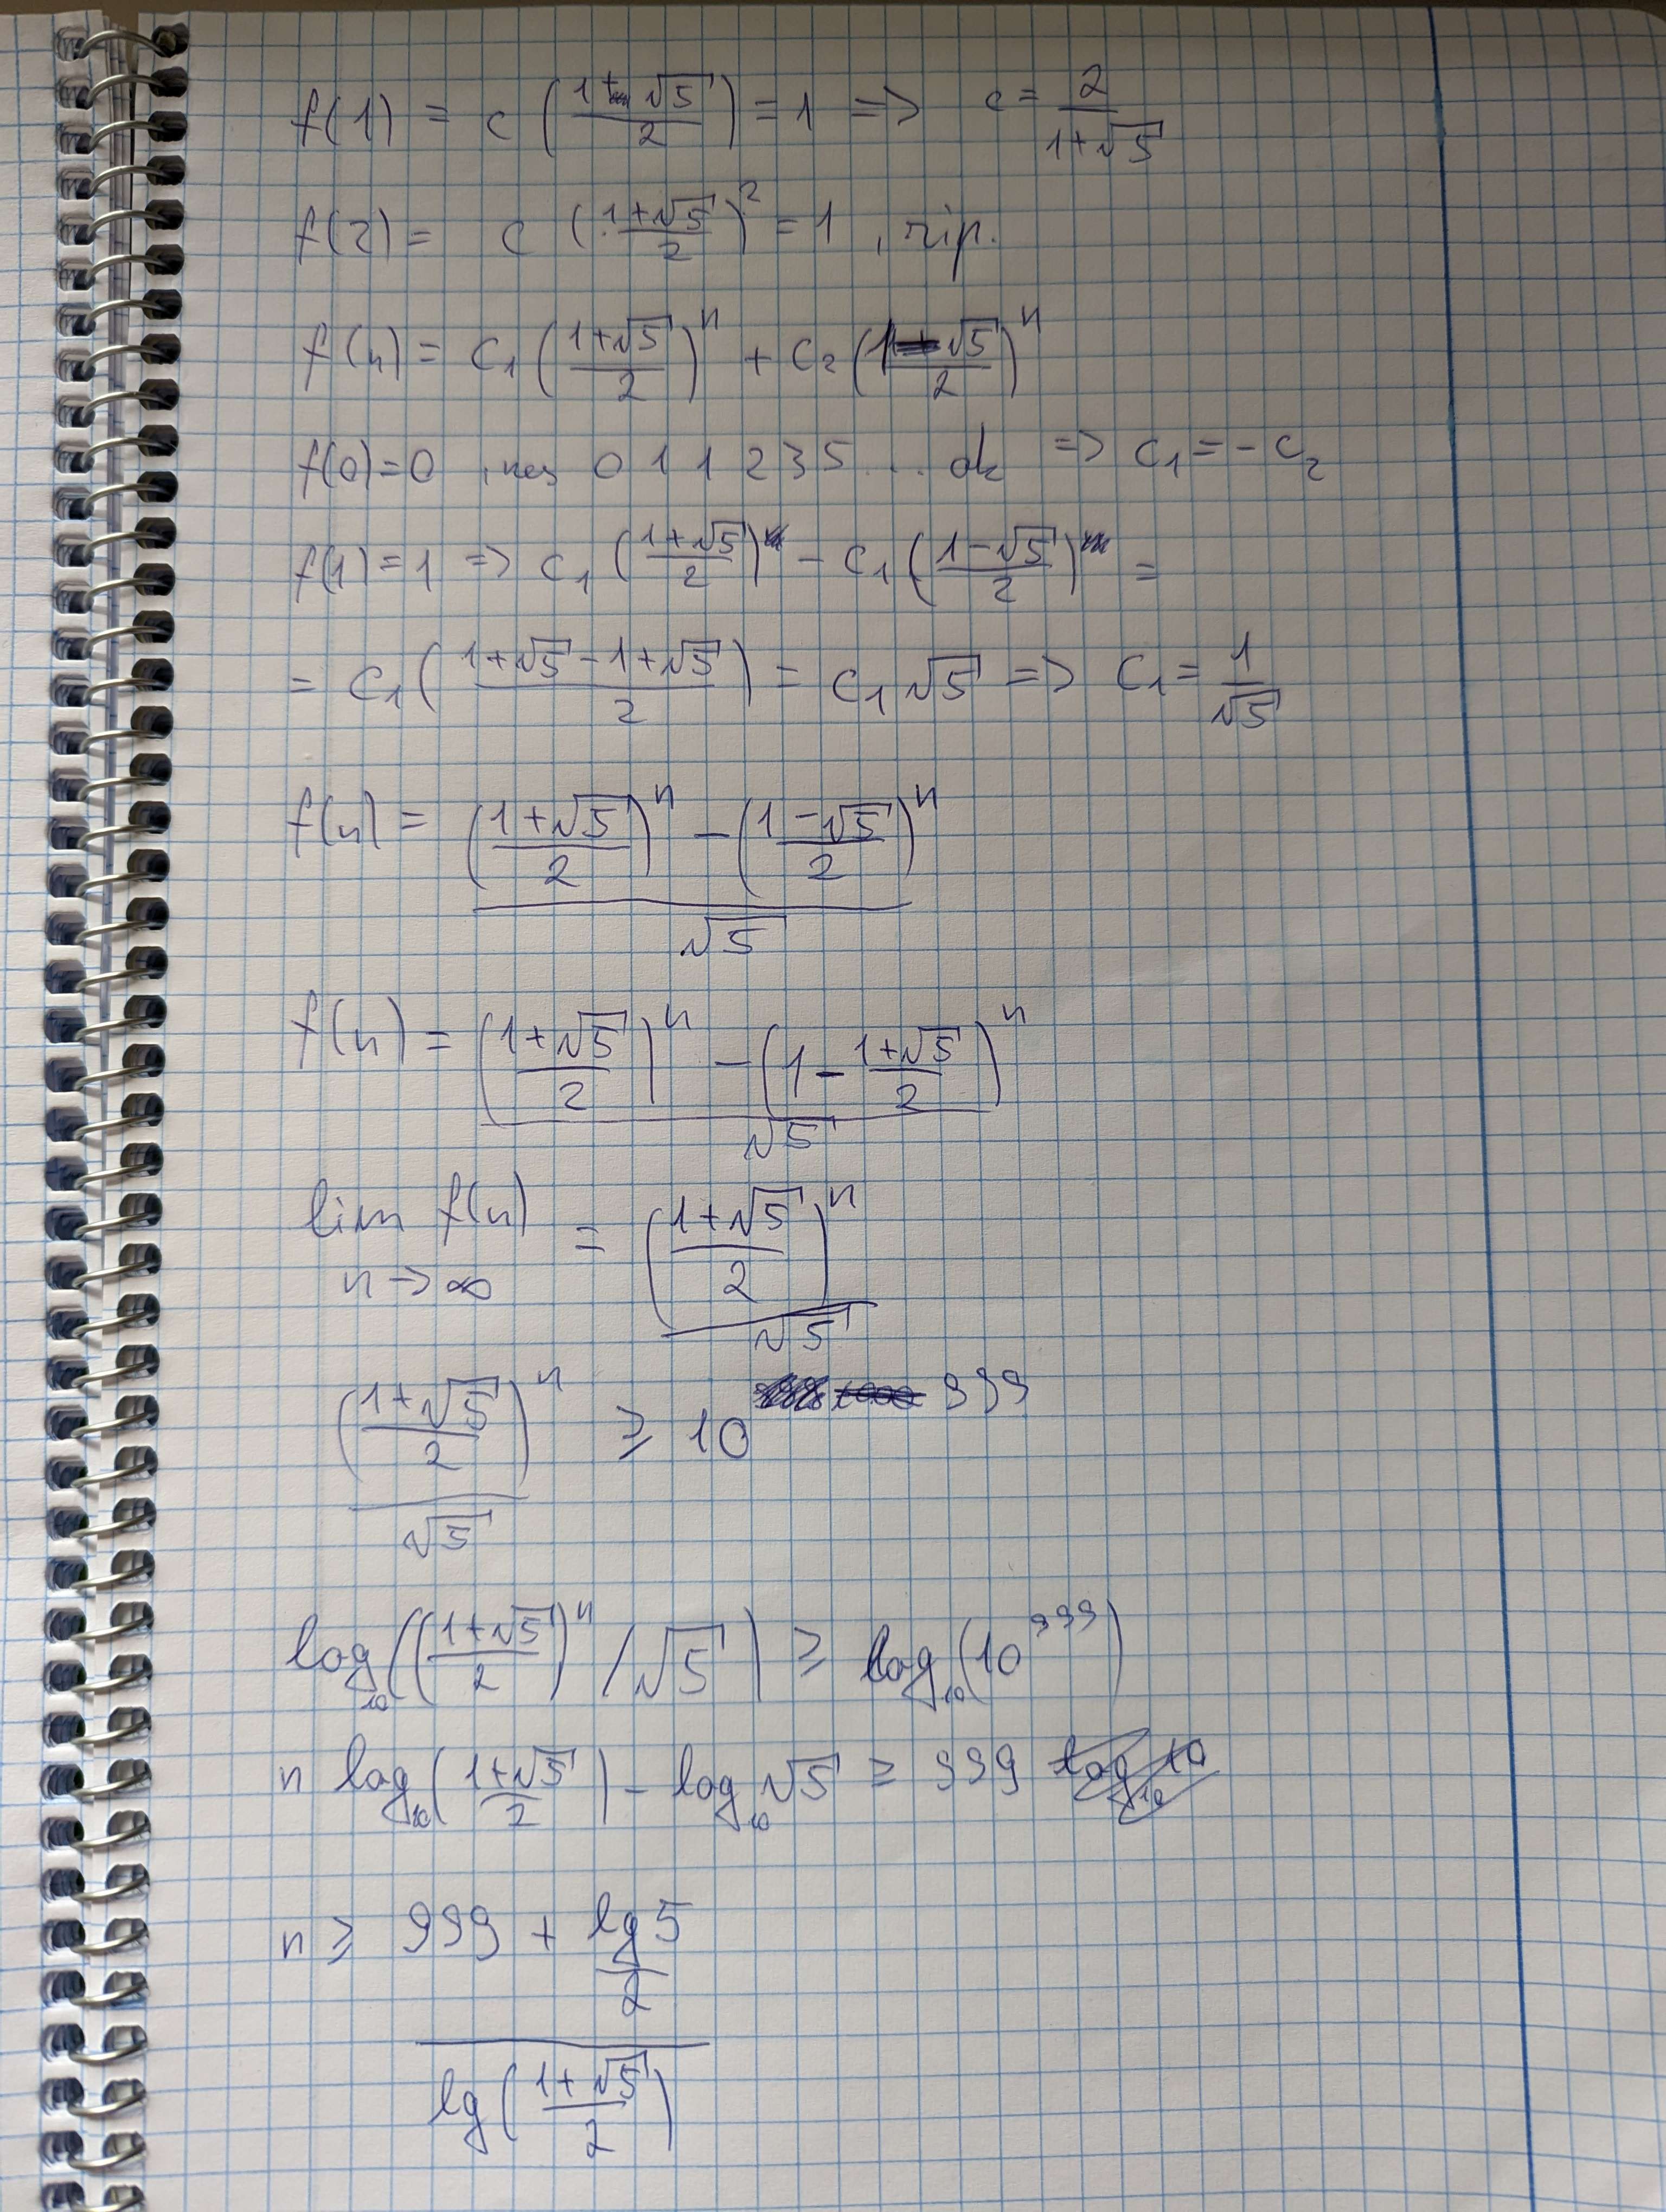 f(1) = c ((1+√5)/2) = 1 => c = 2/(1+√5)
f(2) = c ((1+√5)/2)² = 1 , rip.
f(n) = c₁ ((1+√5)/2)ⁿ + c₂ ((1-√5)/2)ⁿ
f(0)=0 , nes 0 1 1 2 3 5 ... ok => c₁ = -c₂
f(1)=1 => c₁ ((1+√5)/2) - c₁ ((1-√5)/2) =
= c₁ ((1+√5-1+√5)/2) = c₁ √5 => c₁ = 1/√5
f(n) = (((1+√5)/2)ⁿ - ((1-√5)/2)ⁿ)/√5
f(n) = (((1+√5)/2)ⁿ - (1 - (1+√5)/2)ⁿ)/√5
lim f(n) n→∞ = ((1+√5)/2)ⁿ/√5
((1+√5)/2)ⁿ/√5 ≥ 10⁹⁹⁹
log₁₀(((1+√5)/2)ⁿ /√5) ≥ log₁₀(10⁹⁹⁹)
n log₁₀((1+√5)/2) - log₁₀√5 ≥ 999 log₁₀10
n ≥ (999 + lg5/2)/lg((1+√5)/2)